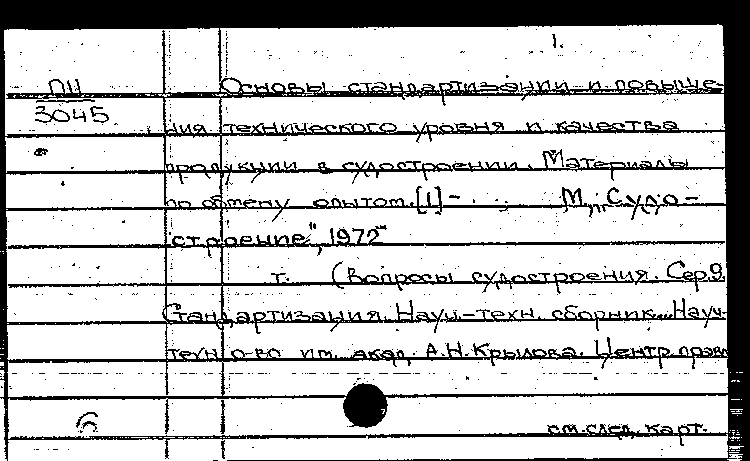 1.
ПII Основы стандартизации и повыше-
3045. ния технического уровня и качества
продукции в судостроении. Материалы
по обмену опытом. [1] – М., „Судо-
строение", 1972–
т. (Вопросы судостроения. Сер. 9.
Стандартизация. Науч-техн. сборник. Науч-
техн о-во им. акад. А.Н. Крылова. Центр. правл
6 см. след. карт.